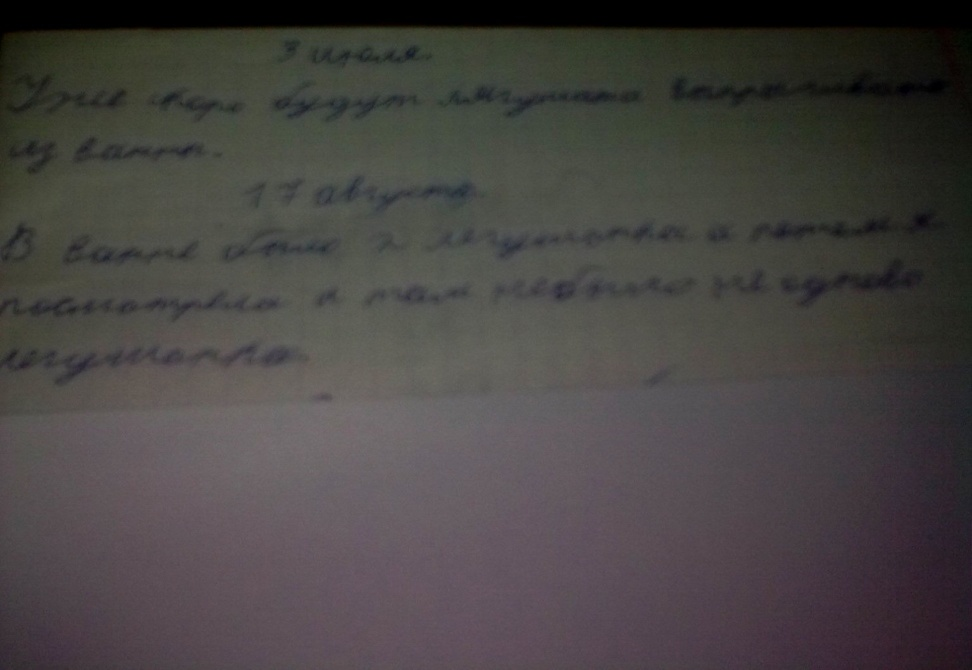 3 июля.
Уже скоро будут лягушата выпрыгивать
из ванны.
17 августа.
В ванне было 2 легушонка а потом я
посмотрела и там небыло не одново
легушонка.